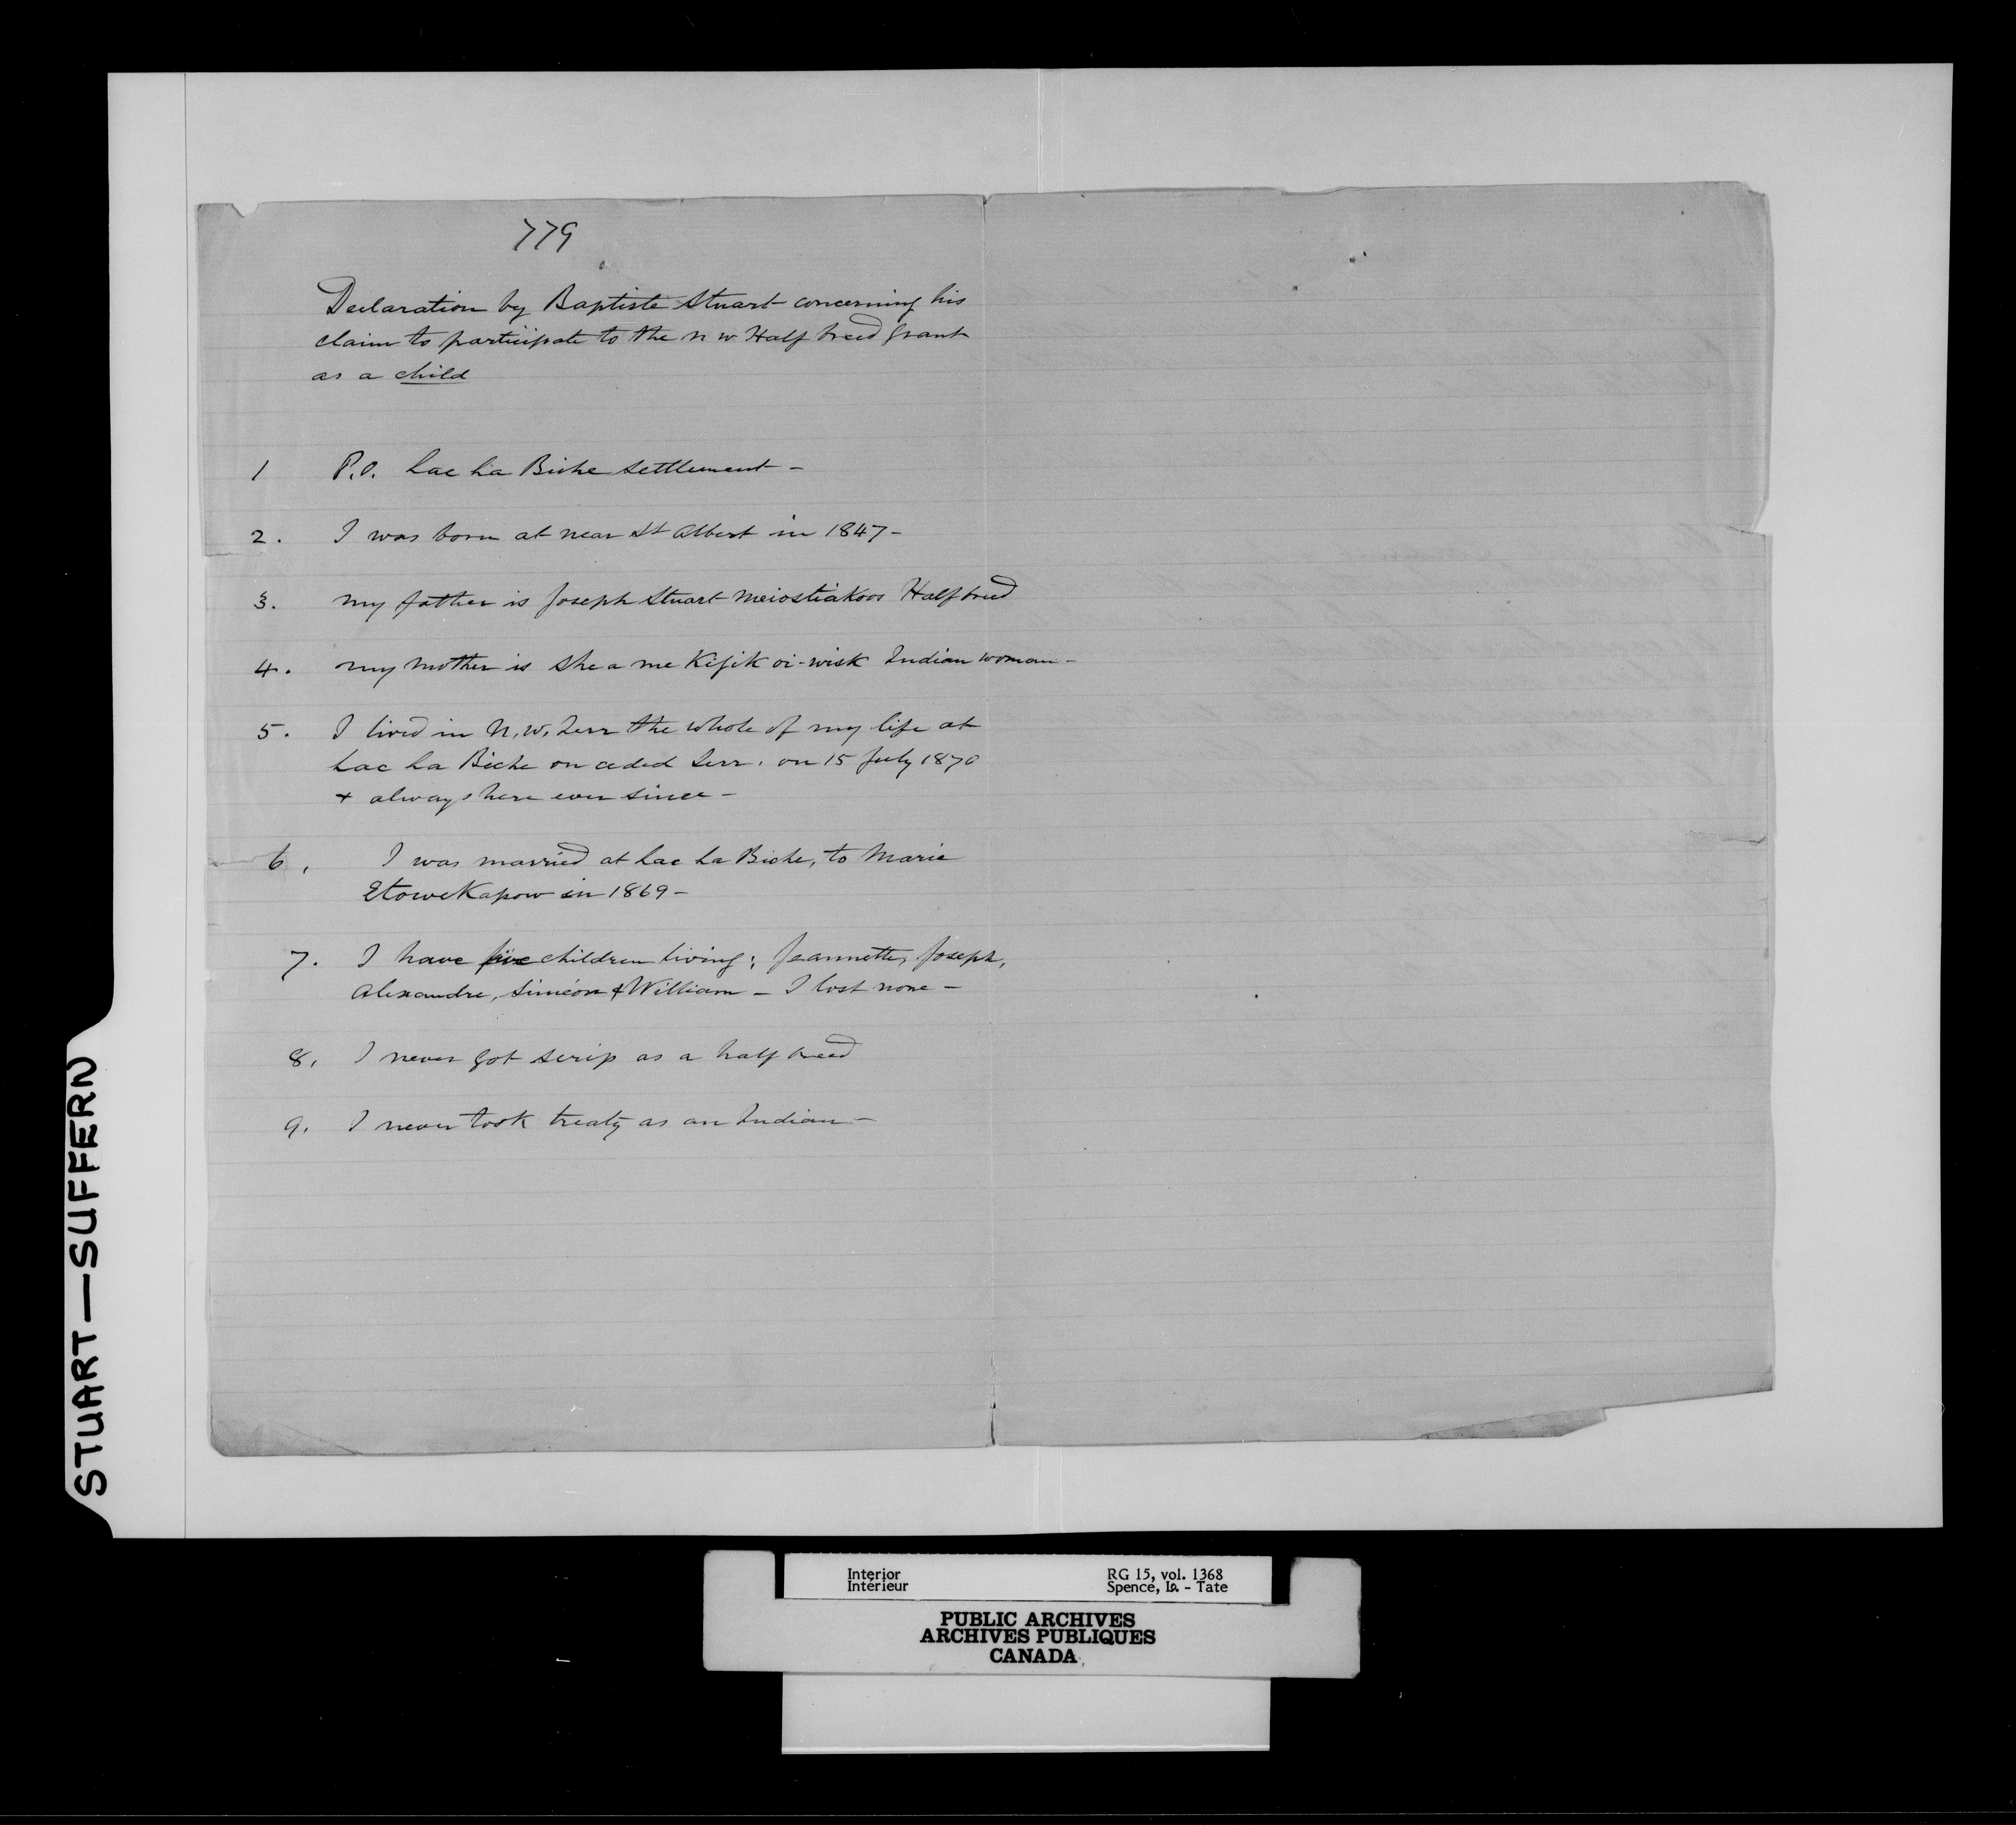 779
Declaration by Baptiste Stuart concerning his
claim to participate to the N W Half breed grant
as a child
1 P.O. Lac La Biche Settlement -
2. I was born at near St Albert in 1847 -
3. my father is Joseph Stuart Meiostiakoos Halfbreed
4. my mother is She a me Kijik oi-wisk Indian woman -
5. I lived in N. W. Terr the whole of my life at
Lac La Biche on ceded Terr. on 15 July 1870
+ always here ever since -
6, I was married at Lac La Biche, to Marie
EtoweKapow in 1869 -
7. I have five children living; Jeannette, Joseph,
Alexandre, Siméon & William - I lost none -
8, I never got scrip as a half breed
9. I never took treaty as an Indian -
STUART—SUFFERN
Interior RG 15, vol. 1368
Intérieur Spence, Is. - Tate
PUBLIC ARCHIVES
ARCHIVES PUBLIQUES
CANADA